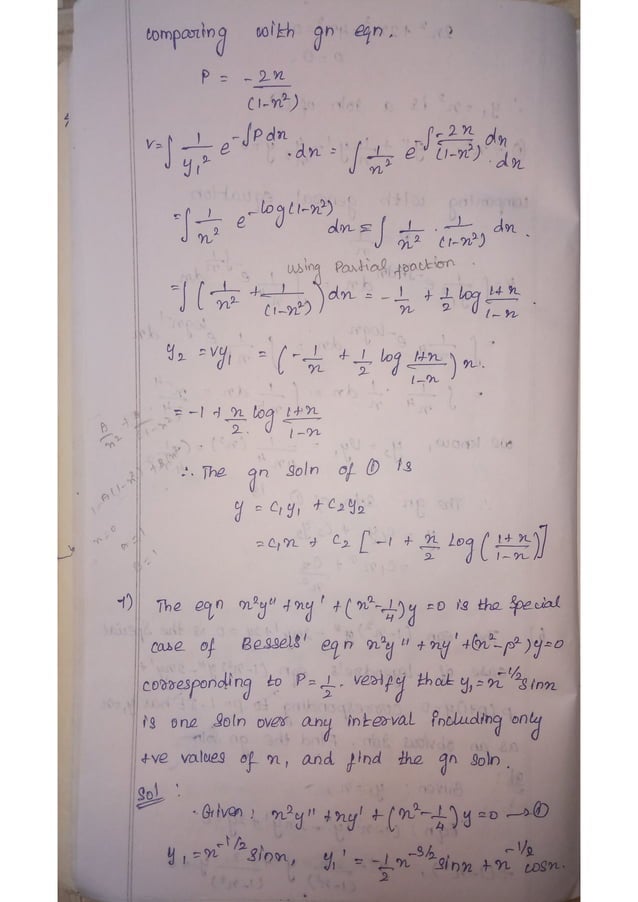 comparing with gn eqn.
P = - 2x / (1-x²)
v = ∫ 1/y₁² e^(-∫P dx) . dx = ∫ 1/x² e^(-∫ -2x/(1-x²) dx) . dx
= ∫ 1/x² e^(-log(1-x²)) dx = ∫ 1/x² . 1/(1-x²) dx .
using Partial fraction .
= ∫ ( 1/x² + 1/(1-x²) ) dx = - 1/x + 1/2 log 1+x/1-x .
y₂ = vy₁ = ( - 1/x + 1/2 log 1+x/1-x ) x .
= -1 + x/2 log 1+x/1-x
∴ The gn soln of ① is
y = c₁y₁ + c₂y₂
= c₁x + c₂ [ -1 + x/2 log ( 1+x/1-x ) ]
7) The eqn x²y'' + xy' + (x² - 1/4)y = 0 is the special
case of Bessels' eqn x²y'' + xy' + (x² - p²)y = 0
corresponding to P = 1/2 . verify that y₁ = x^(-1/2) sinx
is one soln over any interval including only
+ve values of x, and find the gn soln.
Sol :
Given : x²y'' + xy' + (x² - 1/4) y = 0 → ①
y₁ = x^(-1/2) sinx, y₁' = - 1/2 x^(-3/2) sinx + x^(-1/2) cosx.